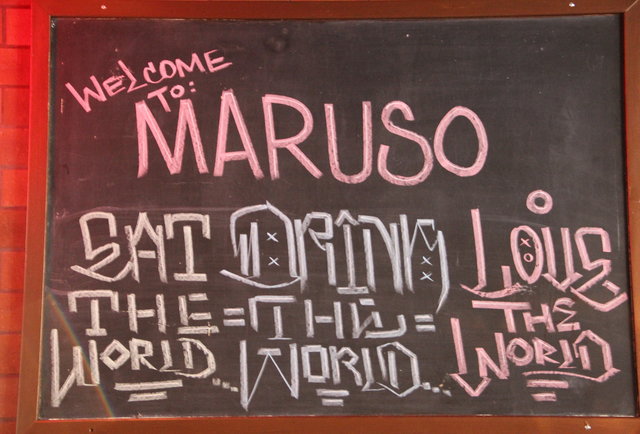 WELCOME
TO:
MARUSO
EAT DRINK LOVE
THE = THE = THE
WORLD... WORLD... WORLD